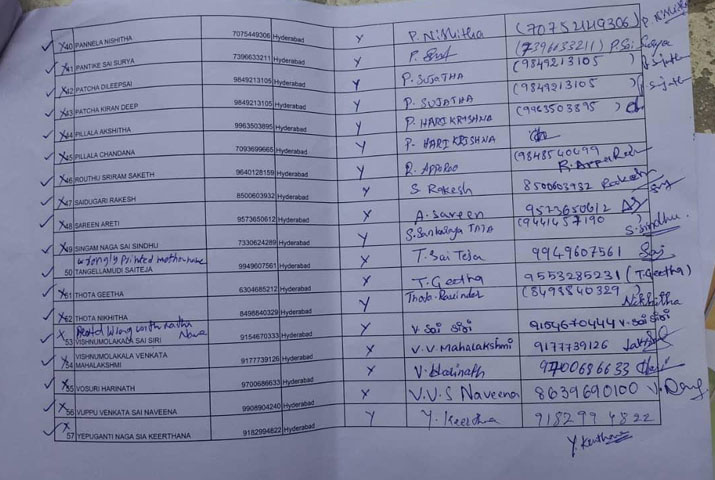 ✓ x40 PANNELA NISHITHA 7075449306 Hyderabad Y P. Nishitha (7075449306) P. Nishitha
✓ x41 PANTIKE SAI SURYA 7396633211 Hyderabad Y P. (7396633211) P. Sai Surya
✓ x42 PATCHA DILEEPSAI 9849213105 Hyderabad Y P. SUJATHA (9849213105)
✓ x43 PATCHA KIRAN DEEP 9849213105 Hyderabad Y P. SUJATHA (9849213105)
✓ x44 PILLALA AKSHITHA 9963503895 Hyderabad Y P. HARI KRISHNA (9963503895)
✓ x45 PILLALA CHANDANA 7093699665 Hyderabad Y P. HARI KRISHNA
✓ x46 ROUTHU SRIRAM SAKETH 9640128159 Hyderabad Y R. APPARAO
✓ x47 SAIDUGARI RAKESH 8500603932 Hyderabad Y S. Rakesh 8500603932 Rakesh
✓ x48 SAREEN ARETI 9573650612 Hyderabad Y A. Sareen 9573650612
✓ x49 SINGAM NAGA SAI SINDHU 7330624289 Hyderabad Y (9441457190) S. Sindhu
wrongly printed mother name
50 TANGELLAMUDI SAITEJA 9949607561 Hyderabad x T. Sai Teja 9949607561 Sai
✓ x51 THOTA GEETHA 6304685212 Hyderabad x T. Geetha 9553285231 (T. Geetha)
✓ x52 THOTA NIKHITHA 8498840329 Hyderabad Y Thota Ravinder (8498840329) Nikhitha
x53 VISHNUMOLAKALA SAI SIRI 9154670333 Hyderabad Y V. Sai Siri V. Sai Siri
✓ x54 VISHNUMOLAKALA VENKATA MAHALAKSHMI 9177739126 Hyderabad x V. V. Mahalakshmi 9177739126
✓ x55 VOSURI HARINATH 9700686633 Hyderabad x V. Harinath 9700686633
✓ x56 VUPPU VENKATA SAI NAVEENA 9908904240 Hyderabad x V. V. S Naveena 8639690100
✓ x57 YEPUGANTI NAGA SIA KEERTHANA 9182994822 Hyderabad Y Y. Keerthana 9182994822
Y. Keerthana